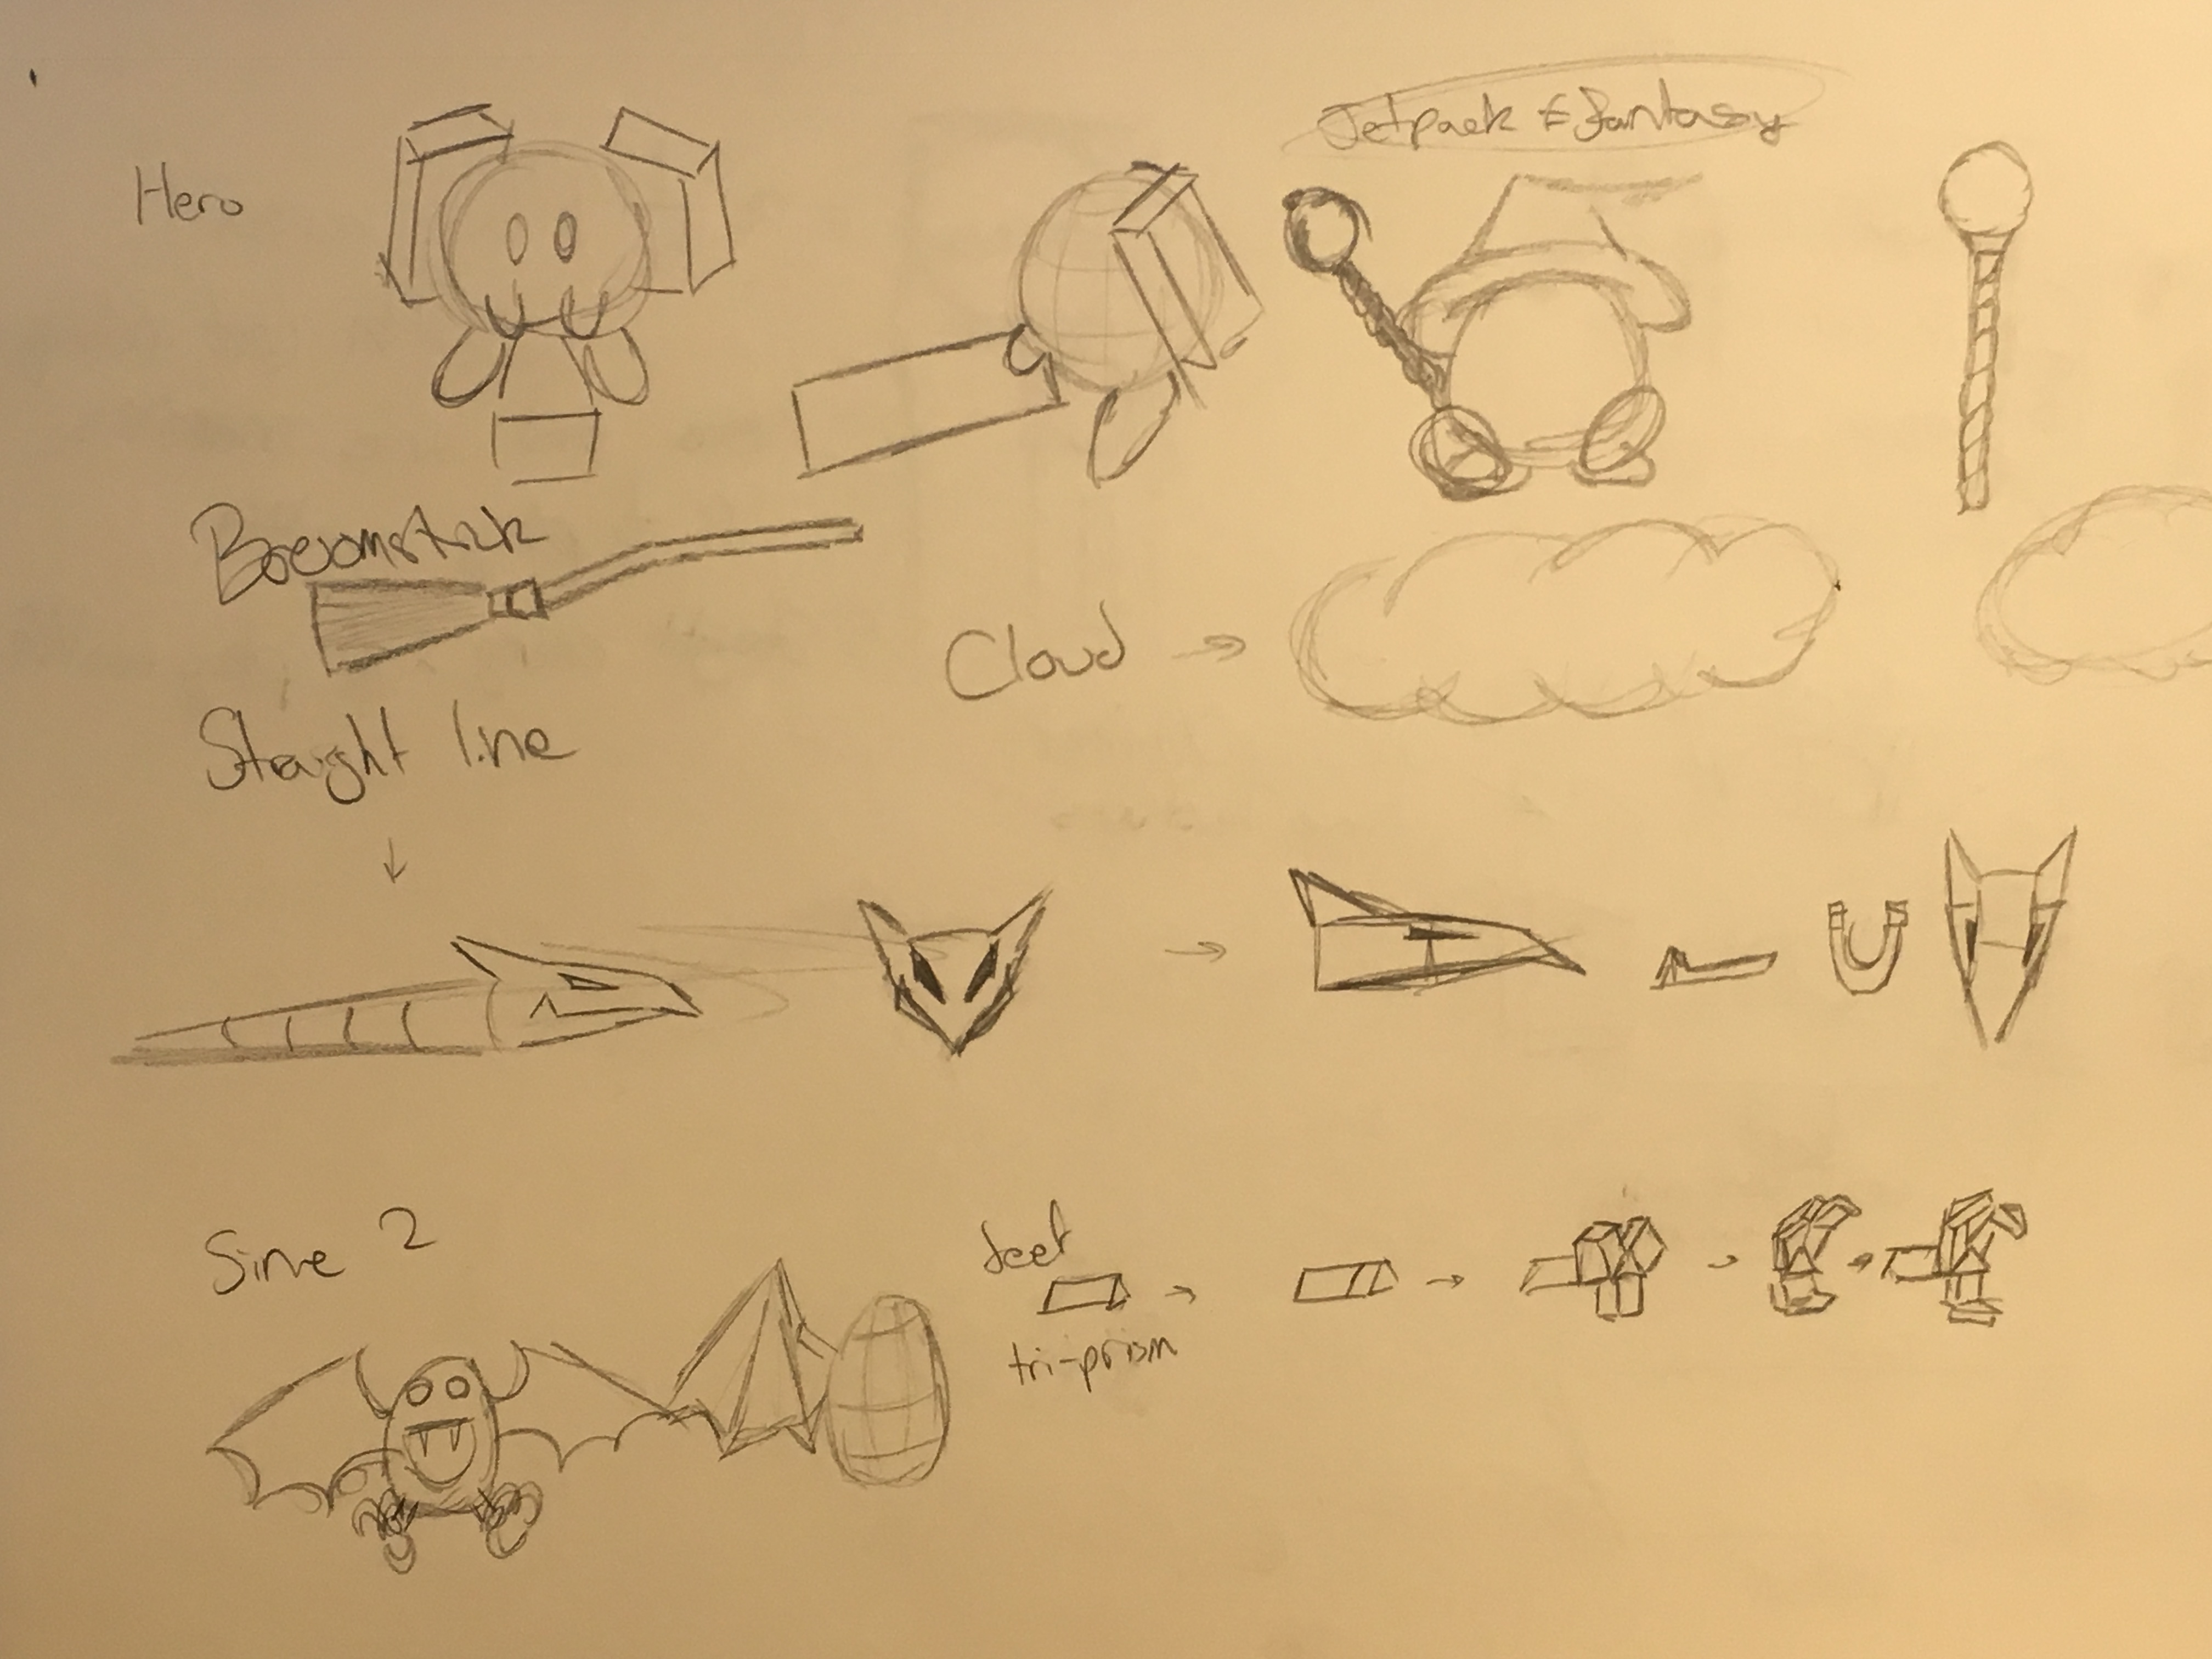 Hero
Jetpack & fantasy
Broomstick
Cloud →
Straight line
Sine 2
feet
tri-prism